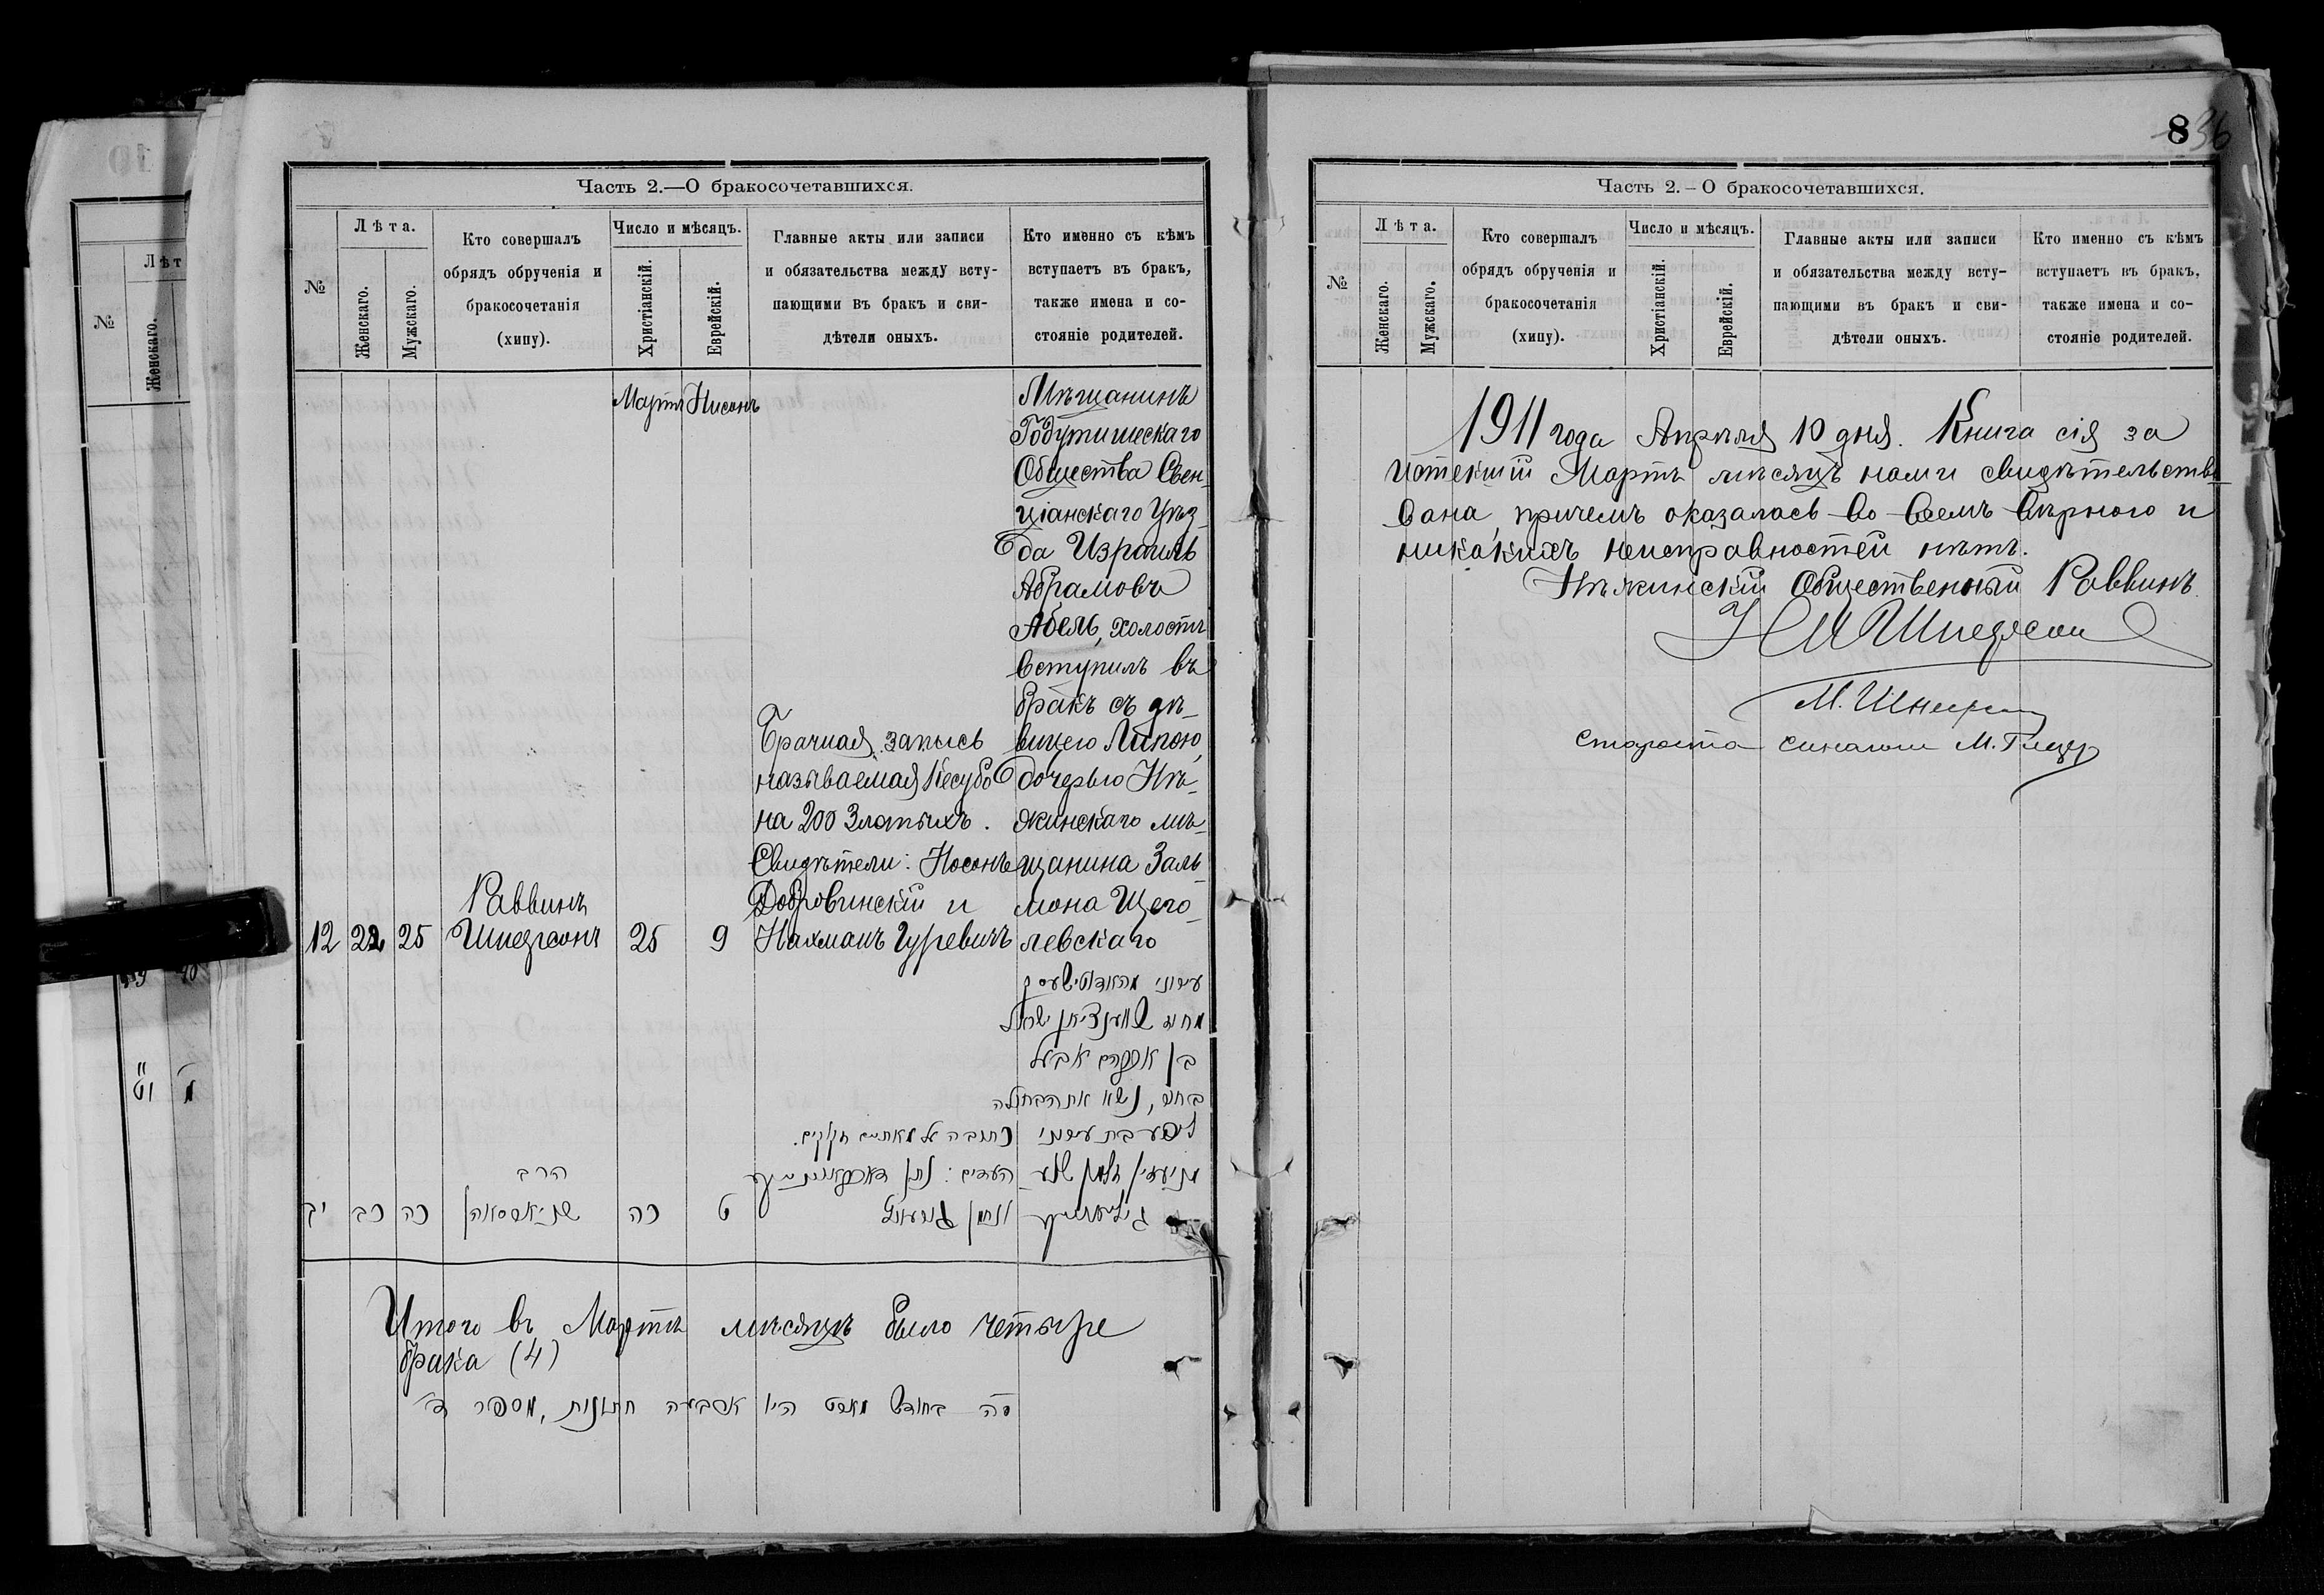 Часть 2.—О бракосочетавшихся.
№
Лѣта.
Женскаго.
Мужскаго.
Кто совершалъ
обрядъ обрученія и
бракосочетанія
(хипу).
Число и мѣсяцъ.
Христіанскій.
Еврейскій.
Главные акты или записи
и обязательства между всту-
пающими въ бракъ и сви-
дѣтели оныхъ.
Кто именно съ кѣмъ
вступаетъ въ бракъ,
также имена и со-
стояніе родителей.
Мартъ Нисонъ
12 22 25
Раввинъ
Шнеерсонъ
25 9
Брачная запысь
называемая Кесубо
на 200 Злотыхъ.
Свидѣтели: Носонъ
Добровинскій и
Нахманъ Гуревичъ
Мѣщанинъ
Годутишскаго
Общества Свен-
ціанскаго Уѣз-
да Израиль
Абрамовъ
Абель, холостъ
вступилъ въ
бракъ съ дѣ-
вицею Липою,
дочерью Нѣ-
жинскаго мѣ-
щанина Заль
мона Щего-
левскаго
בן אברהם אבעל
בחור, נשא את הבתולה
ליפע בת עירוני
כתובה על מאתים זקוקים.
הרב
יב כב כה
כה ט
העדים: נתן
ונחמן גורעוויץ
Итого въ Мартѣ мѣсяцѣ было четыре
брака (4)
סה בחודש מארט היו ארבעה חתונות, מספר ד'
8 36
Часть 2.–О бракосочетавшихся.
№
Лѣта.
Женскаго.
Мужскаго.
Кто совершалъ
обрядъ обрученія и
бракосочетанія
(хипу).
Число и мѣсяцъ.
Христіанскій.
Еврейскій.
Главные акты или записи
и обязательства между всту-
пающими въ бракъ и сви-
дѣтели оныхъ.
Кто именно съ кѣмъ
вступаетъ въ бракъ,
также имена и со-
стояніе родителей.
1911 года Апрѣля 10 дня. Книга сія за
истекшій Мартъ мѣсяцъ нами свидѣтельство
вана, причемъ оказалась во всемъ вѣрною и
никакихъ неисправностей нѣтъ.
Нѣжинскій Общественный Раввинъ
Шнеерсон
М.
староста синагоги М.